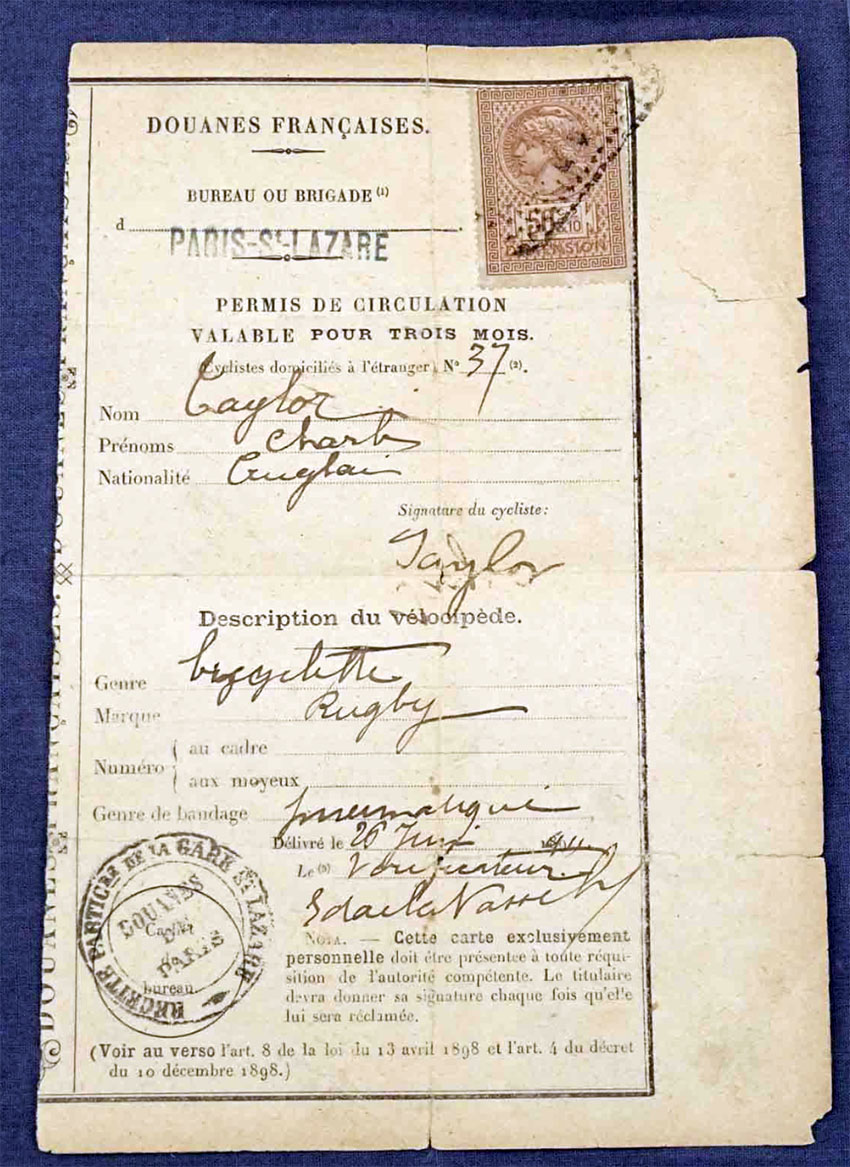 DOUANES FRANÇAISES.
BUREAU OU BRIGADE (1)
d
PARIS-St-LAZARE
50
DIMENSION
PERMIS DE CIRCULATION
VALABLE POUR TROIS MOIS.
(Cyclistes domiciliés à l'étranger) N° 37 (2).
Nom Taylor
Prénoms Charles
Nationalité Anglais
Signature du cycliste:
Taylor
Description du vélocipède.
Genre bicyclette
Marque Rugby
Numéro
au cadre
aux moyeux
Genre de bandage pneumatique
Délivré le 26 Juin
Le (3) Vérificateur
NOTA. — Cette carte exclusivement
personnelle doit être présentée à toute réqui-
sition de l'autorité compétente. Le titulaire
devra donner sa signature chaque fois qu'elle
lui sera réclamée.
RECETTE PARTICre DE LA GARE St LAZARE
DOUANES
DE
PARIS
Cachet
du
bureau
(Voir au verso l'art. 8 de la loi du 13 avril 1898 et l'art. 4 du décret
du 10 décembre 1898.)
DOUANES FRANÇAISES. DOUANES FRANÇAISES.